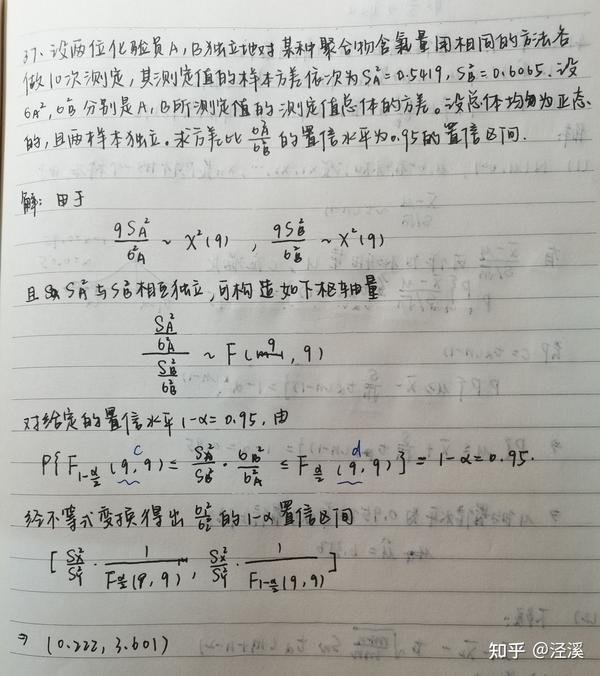 37、设两位化验员A,B独立地对某种聚合物含氯量用相同的方法各
做10次测定,其测定值的样本方差依次为S_A^2=0.5419, S_B^2=0.6065. 设
σ_A^2, σ_B^2 分别是A,B所测定值的测定值总体的方差。设总体均为正态
的,且两样本独立。求方差比 σ_A^2/σ_B^2 的置信水平为0.95的置信区间.
解: 由于
9S_A^2/σ_A^2 ~ χ^2(9) , 9S_B^2/σ_B^2 ~ χ^2(9)
且 S_A^2 与 S_B^2 相互独立,可构造如下枢轴量
(S_A^2/σ_A^2)/(S_B^2/σ_B^2) ~ F(9, 9)
对给定的置信水平 1-α=0.95, 由
c d
P{F_{1-α/2}(9,9) ≤ S_A^2/S_B^2 · σ_B^2/σ_A^2 ≤ F_{α/2}(9,9)} = 1-α=0.95.
经不等式变换得出 的1-α置信区间
[S_x^2/S_y^2 · 1/F_{α/2}(9,9), S_x^2/S_y^2 · 1/F_{1-α/2}(9,9)]
⇒ (0.222, 3.601)
知乎 @泾溪